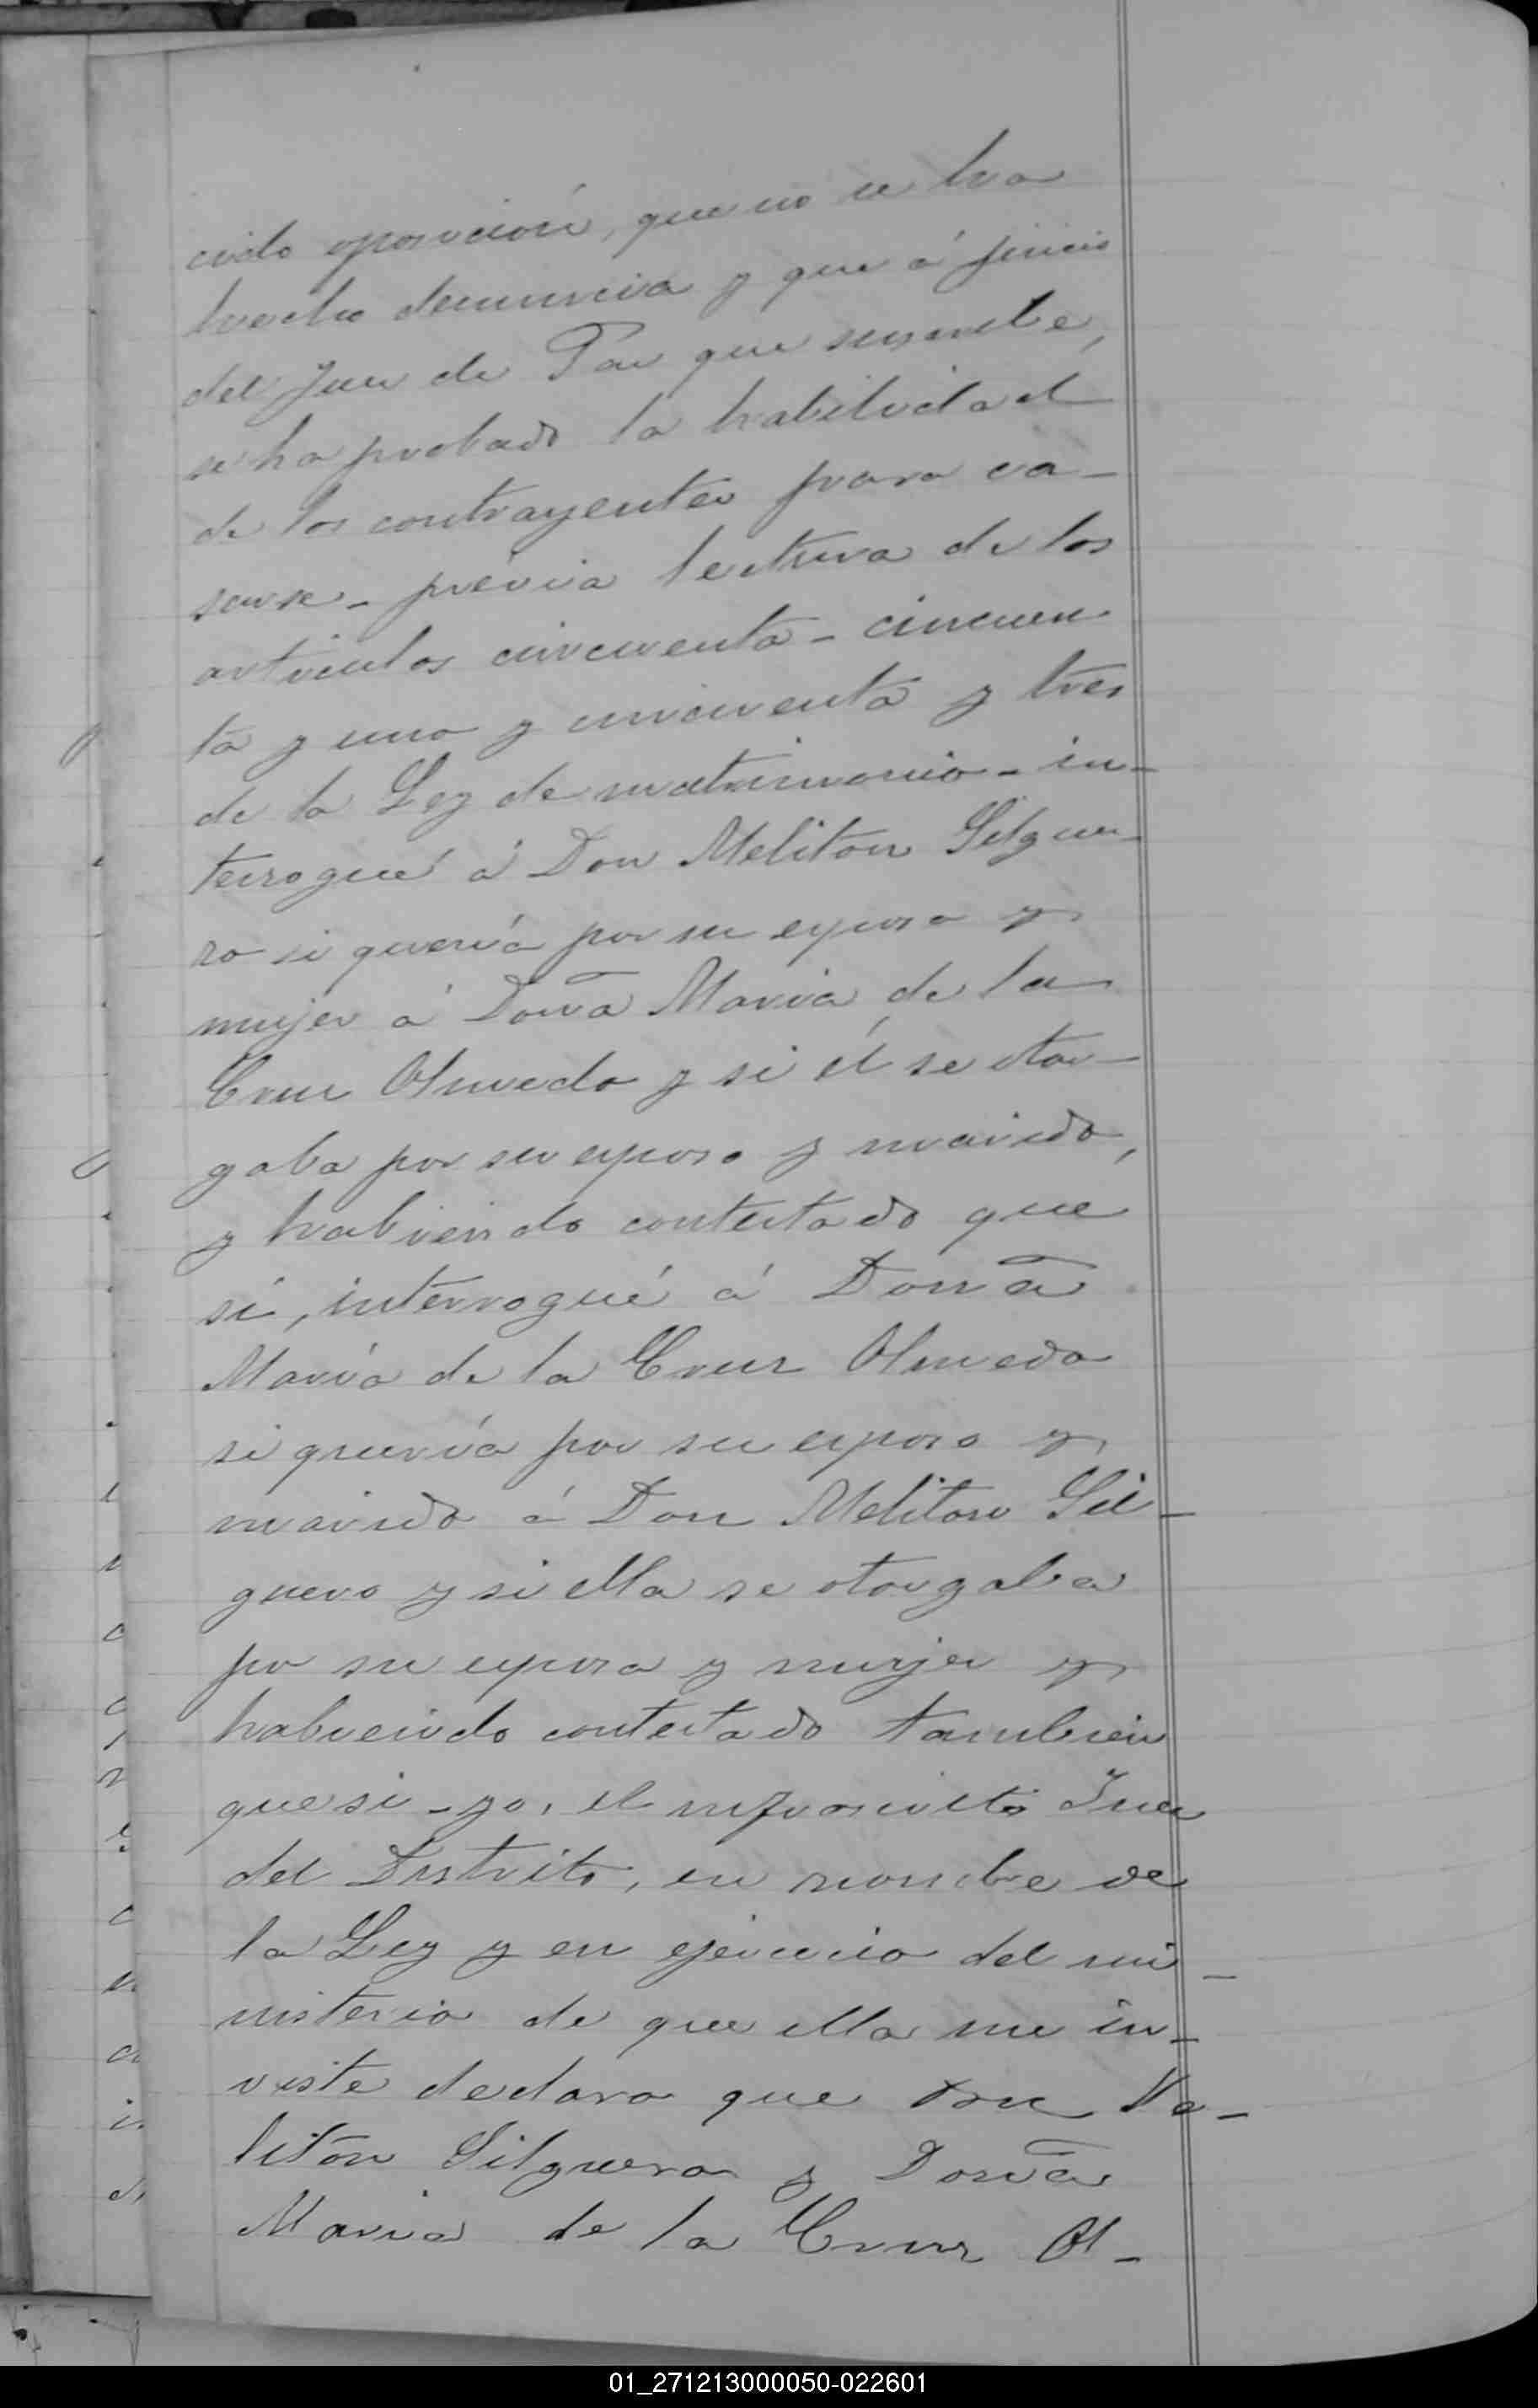 cido oposición, que no se ha
hecho denuncia y que á juicio
del Juez de Paz que suscribe,
se ha probado la habilidad
de los contrayentes para ca-
sarse - prévia lectura de los
artículos cincuenta - cincuen
ta y uno y cincuenta y tres
de la Ley de matrimonio - in-
terrogué á Don Meliton Silgue
ro si quería por su esposa y
mujer á Doña Maria de la
Cruz Olmedo y si él se otor-
gaba por su esposo y marido,
y habiendo contestado que
sí, interrogué á Doña
María de la Cruz Olmedo
si quería por su esposo y
marido á Don Meliton Sil-
guero y si ella se otorgaba
por su esposa y mujer y
habiendo contestado tambien
que si - yo, el infrascrito Juez
del Distrito, en nombre de
la Ley y en ejercicio del mi-
nisterio de que ella me in-
viste declaro que Don Me-
litón Silguero y Doña
Maria de la Cruz Ol-
01_271213000050-022601